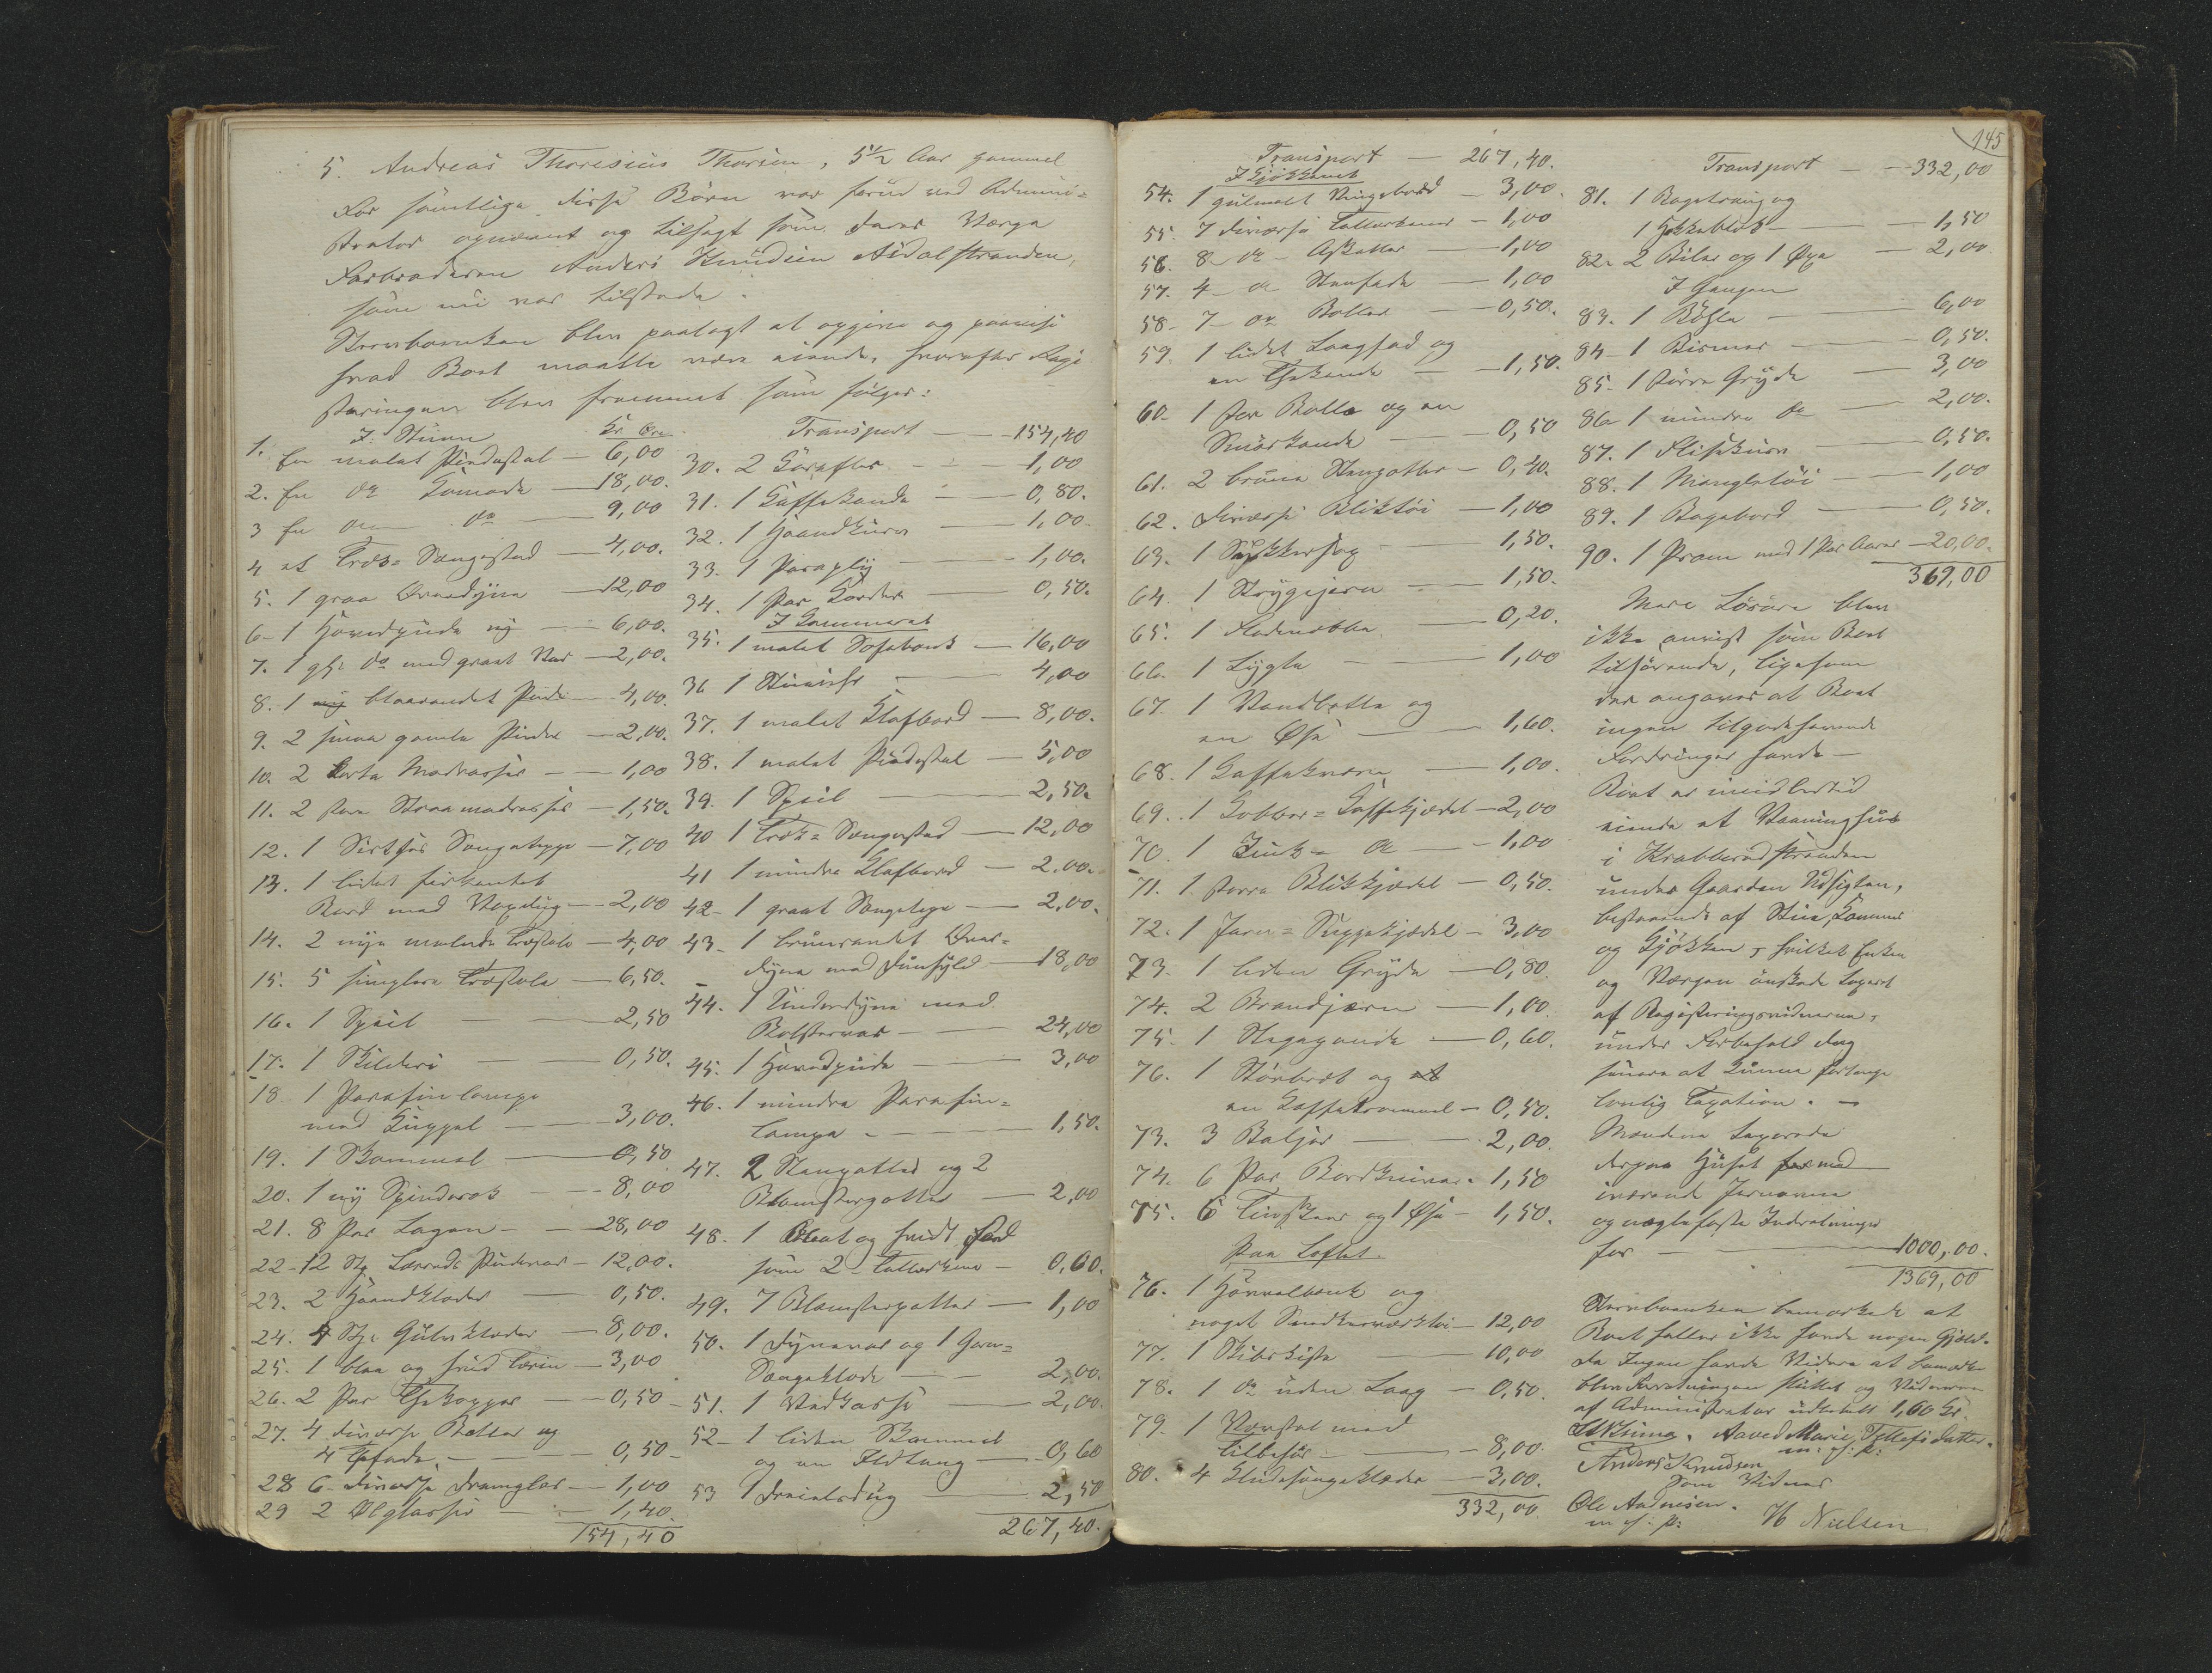 5. Andreas Thoresius Thorsen, 5 1/2 Aar gammel
For samtlige disse Børn var forud ved Admini-
strator opnævnt og tilsagt som deres Værge
Farbroderen Anders Knudsen Aidalstranden,
som nu var tilstede.
Stervboenken blev paalagt at opgive og paavise
hvad Boet maatte være eiende, hvorefter Regi-
streringen blev fremmet som følger:
I Stuen Kr Øre
1. En malet Pindestol — 6,00
2. En do Komode — 18,00.
3 En do — 9,00
4 et Træ-Sengested — 4,00.
5. 1 graa Overdyne — 12,00
6- 1 Hovedpude ny — 6,00.
7. 1 gl: do med graat Var — 2,00.
8. 1 ny blaarandet Pude — 4,00.
9. 2 smaa gamle Puder — 2,00.
10. 2 korte Madrasser — 1,00
11. 2 store Straamadrasser — 1,50.
12. 1 Sirtses Sengeteppe — 7,00
13. 1 lidet firkantet
Bord med Voxdug — 2,00
14. 2 nye malede Træstole — 4,00
15. 5 simplere Træstole — 6,50.
16. 1 Speil — 2,50
17. 1 Skilderi — 0,50.
18. 1 Parafinlampe
med Kuppel — 3,00.
19. 1 Skammel — 0,50
20. 1 ny Spinderok — 8,00
21. 8 Par Lagen — 28,00
22- 12 Stk Lærreds Pudevar — 12,00.
23. 2 Haandklæder — 0,50.
24. 4 Stk: Gulvklæder — 8,00.
25. 1 blaa og hvid Terin — 3,00
26. 2 Par Thekopper — 0,50
27. 4 diverse Boller og
4 Fade — 0,50
28 6 diverse Dramglas — 1,00
29 2 Ølglasser — 1,40.
154,40
Transport — 154,40
30. 2 Karafler — 1,00
31. 1 Kaffekande — 0,80.
32. 1 Haandkurv — 1,00.
33. 1 Paraply — 1,00.
34. 1 Par Karder — 0,50.
I Kammeret
35. 1 malet Sofabænk — 16,00
36 1 Stueuhr — 4,00
37. 1 malet Klafbord — 8,00.
38. 1 malet Pindestol — 5,00
39. 1 Speil — 2,50.
40 1 Træ-Sengested — 12,00
41 1 mindre Klafbord — 2.00.
42- 1 graat Sengeteppe — 2,00.
43- 1 brunrandet Over-
dyne med Dunfyld — 18,00
44. 1 Underdyne med
Bolstervar — 24,00
45. 1 Hovedpude — 3,00
46. 1 mindre Parafin-
lampe — 1,50.
47. 2 Stenpotter og 2
Blomsterpotter — 2,00
48. 1 blaat og hvidt Fad
samt 2 Tallerkener — 0,60.
49. 7 Blomsterpotter — 1,00
50. 1 Dynevar og 1 Garn-
Sengeklæde — 2,00.
51. 1 Vedkasse — 2,00.
52- 1 liden Skammel
og en Ildtang — 0,60
53 1 Dreielsdug — 2,50
267,40.
145
Transport — 267,40.
I Kjøkkenet
54. 1 gulmalt Klingebord — 3,00.
55. 7 diverse Tallerkener — 1,00
56. 8 do Asketter — 1,00
57. 4 do Stenfade — 1,00
58- 7 do Boller — 0,50.
59. 1 lidet Laagfad og
en Thekande — 1,50.
60. 1 stor Bolle og en
Smørkande — 0,50
61. 2 brune Stenpotter — 0,40.
62. diverse Bliktøi — 1,00
63. 1 Stykkersag — 1,50.
64. 1 Strygejern — 1,50.
65. 1 Flødenøbbe — 0,20.
66. 1 Lygte — 1,00
67. 1 Vandbøtte og
en Øse — 1,60.
68. 1 Kaffekværn — 1,00.
69. 1 Kobber-Kaffekjedel — 2,00
70. 1 Zink- do — 1,00
71. 1 større Blikkjedel — 0,50.
72. 1 Jern-Suppekjedel — 3,00
73. 1 liden Gryde — 0,80.
74. 2 Brandjern — 1,00.
75. 1 Stegepande — 0,60.
76. 1 Skurebret og
en Kaffetrommel — 0,50.
73. 3 Baljer — 2,00.
74. 6 Par Bordkniver — 1,50
75. 6 Tinskeer og 1 Øse — 1,50.
Paa Loftet.
76. 1 Høvelbænk og
noget Snedkerværktøi — 12,00
77. 1 Skibskiste — 10,00
78. 1 do uden Laag — 0,50.
79. 1 Vævstol med
Tilbehør — 8,00.
80. 4 Kludesengeklæder — 3,00.
332,00
Transport — 332,00
81. 1 Bagetraug og
1 Hakkeblok — 1,50
82. 2 Biler og 1 Øxe — 2,00
I Gangen
83. 1 Bøsse — 6,00
84- 1 Bismer — 0,50.
85. 1 større Gryde — 3,00
86 1 mindre do — 2,00.
87. 1 Flisekurv — 0,50.
88. 1 Mangletøi — 1,00
89. 1 Bagebord — 0,50.
90. 1 Pram med 1 Par Aarer — 20,00.
369,00
Mere Løsøre blev
ikke anvist som Boet
tilhørende, ligesom
der angaves at Boet
ingen tilgodehavende
Fordringer havde —
Boet er imidlertid
eiende et Vaaningshus
i Krabberødstranden
under Gaarden Udsigten,
bestaaende af Stue, Kammer
og Kjøkken, hvilket Enken
og Værgen ønskede taxeret
af Registreringsvidnerne,
under Forbehold dog
senere at kunne forlange
lovlig Taxation. —
Mændene taxerede
derpaa Huset med
iværende Jernovne
og naglefaste Indretninger
for — 1000,00.
1369,00
Stervboenken bemærkede at
Boet heller ikke havde nogen Gjæld.
Da Ingen havde Videre at bemærke
blev Forretningen sluttet og Vidnerne
af Administrator udbetalt 1,60 Kr.
Aaved Marie Tellefsdatter.
m. f. P.
Anders Knudsen
Som Vidner
Ole Andersen.
m. f. P.
H Nielsen